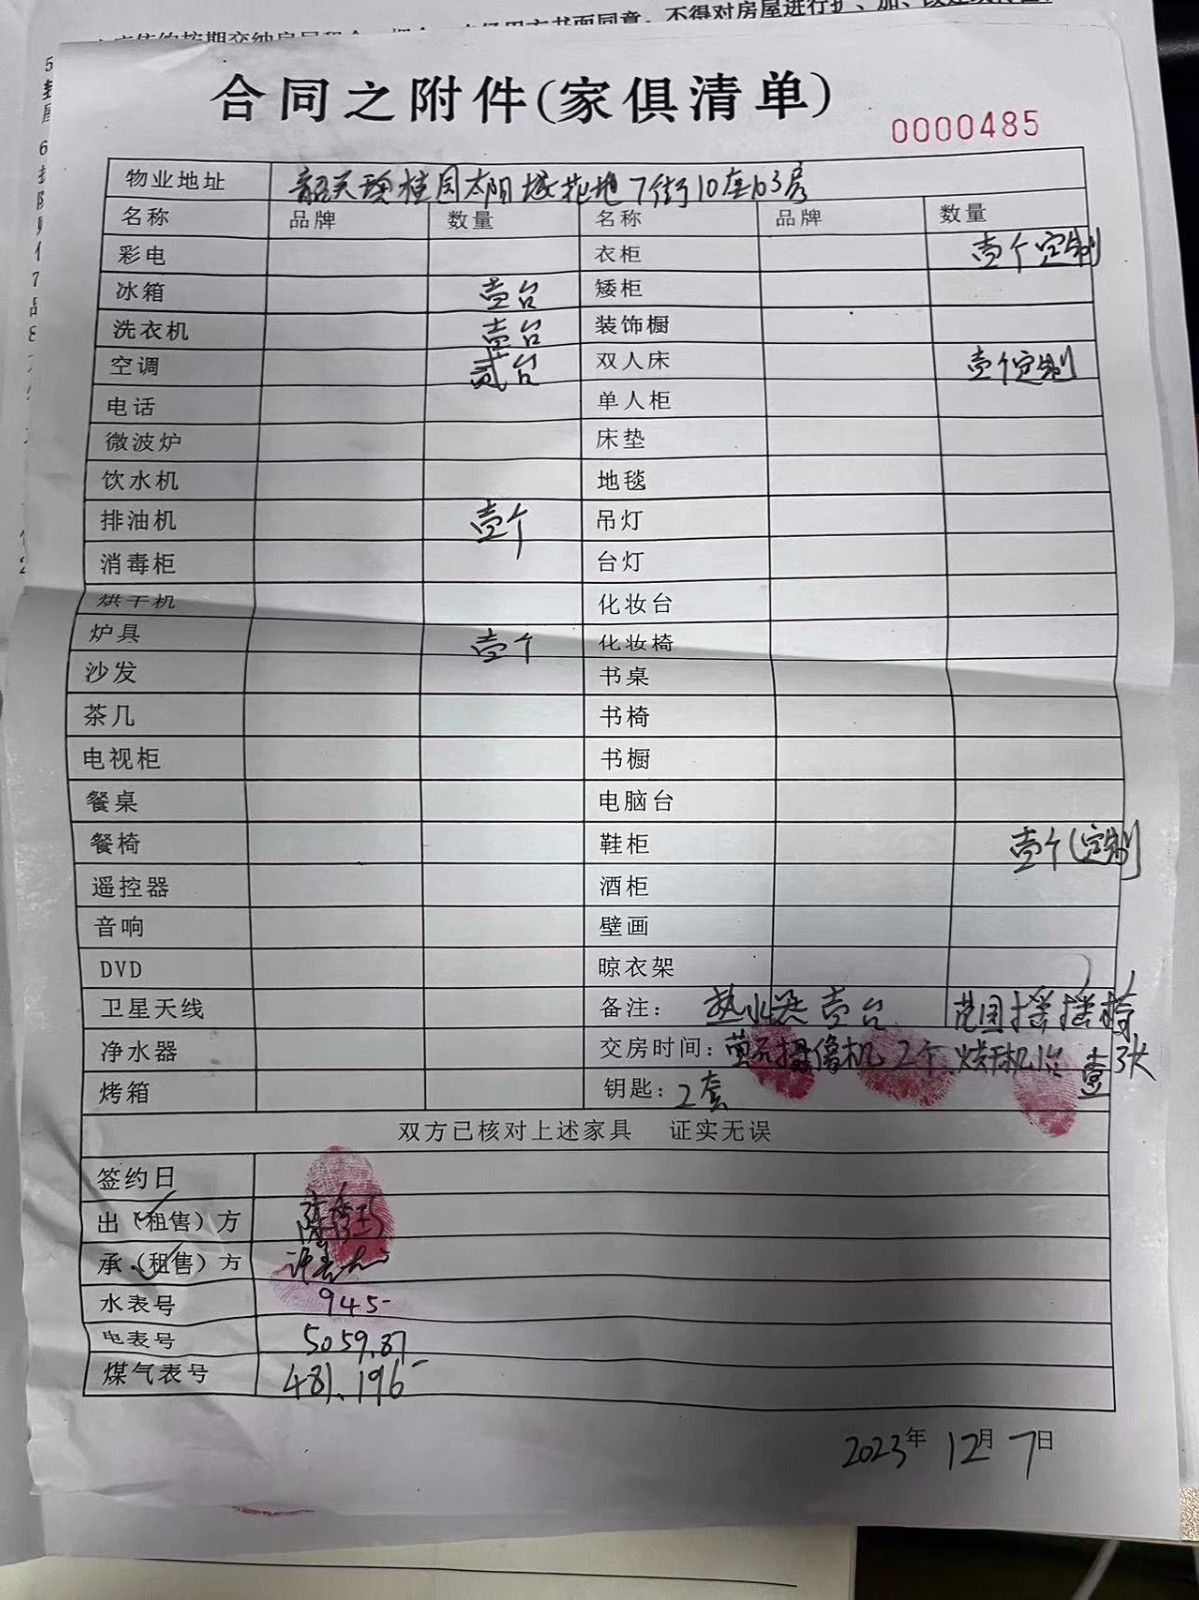 不得对房屋进行扩、加、
合同之附件(家俱清单)
0000485
物业地址 桂园太阳城花地7街10座103房
名称 品牌 数量 名称 品牌 数量
彩电 衣柜 壹个定制
冰箱 壹台 矮柜
洗衣机 壹台 装饰橱
空调 贰台 双人床 壹个定制
电话 单人柜
微波炉 床垫
饮水机 地毯
排油机 壹个 吊灯
消毒柜 台灯
烘干机 化妆台
炉具 壹个 化妆椅
沙发 书桌
茶几 书椅
电视柜 书橱
餐桌 电脑台
餐椅 鞋柜 壹个(定制)
遥控器 酒柜
音响 壁画
DVD 晾衣架
卫星天线 备注: 热水器壹台 摇摇椅
净水器 交房时间: 萤石摄像机2个 壹张
烤箱 钥匙: 2套
双方已核对上述家具 证实无误
签约日
出(租售)方
承(租售)方
水表号 945
电表号 5059.87
煤气表号 481.196
2023年 12月 7日